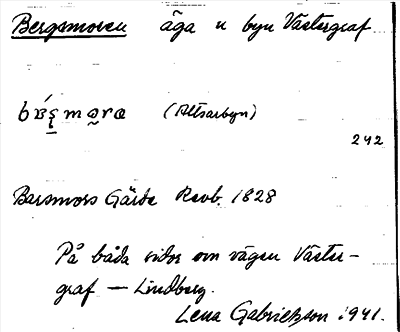 Bergsmoren åga u byn Västergraf
bɐ́ʂm̥ərɑ (Altsarbyn)
242
Barsmors Gärde Revb. 1828
På båda sidor om vägen Väster-
graf — Lindberg.
Lena Gabrielsson 1941.